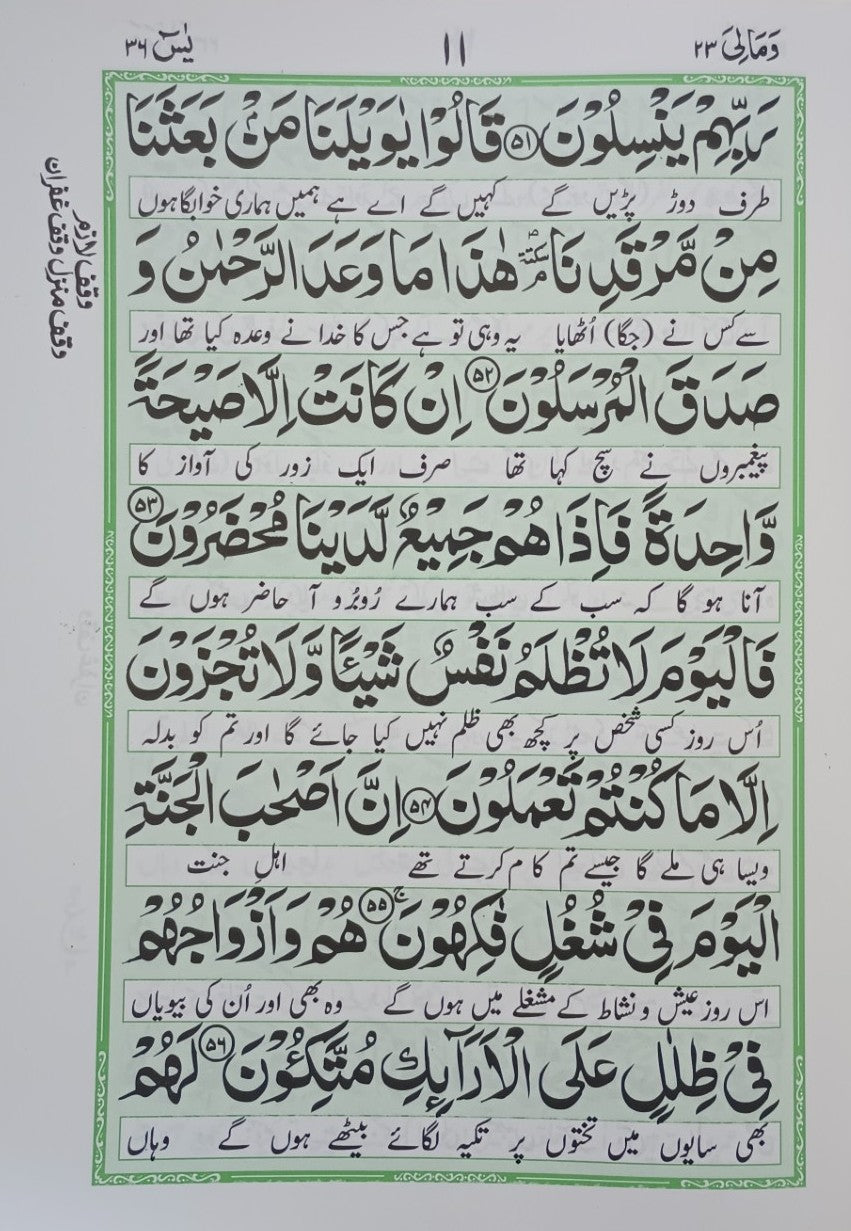 وَمَالِیَ ۲۳
۱۱
یٰسٓ ۳۶
رَبِّهِمْ یَنْسِلُوْنَ ﴿۵۱﴾ قَالُوْا یٰوَیْلَنَا مَنْۢ بَعَثَنَا
طرف دوڑ پڑیں گے کہیں گے اے ہے ہمیں ہماری خوابگاہوں
مِنْ مَّرْقَدِنَا ۘؐ سكتة هٰذَا مَا وَعَدَ الرَّحْمٰنُ وَ
سے کس نے (جگا) اُٹھایا یہ وہی تو ہے جس کا خدا نے وعدہ کیا تھا اور
صَدَقَ الْمُرْسَلُوْنَ ﴿۵۲﴾ اِنْ كَانَتْ اِلَّا صَیْحَةً
پیغمبروں نے سچ کہا تھا صرف ایک زور کی آواز کا
وَّاحِدَةً فَاِذَا هُمْ جَمِیْعٌ لَّدَیْنَا مُحْضَرُوْنَ ﴿۵۳﴾
آنا ہو گا کہ سب کے سب ہمارے رُوبرُو آ حاضر ہوں گے
فَالْیَوْمَ لَا تُظْلَمُ نَفْسٌ شَیْـًٔا وَّلَا تُجْزَوْنَ
اُس روز کسی شخص پر کچھ بھی ظلم نہیں کیا جائے گا اور تم کو بدلہ
اِلَّا مَا كُنْتُمْ تَعْمَلُوْنَ ﴿۵۴﴾ اِنَّ اَصْحٰبَ الْجَنَّةِ
ویسا ہی ملے گا جیسے تم کام کرتے تھے اہلِ جنت
الْیَوْمَ فِیْ شُغُلٍ فٰكِهُوْنَ ﴿۵۵﴾ۚ هُمْ وَاَزْوَاجُهُمْ
اس روز عیش و نشاط کے مشغلے میں ہوں گے وہ بھی اور اُن کی بیویاں
فِیْ ظِلٰلٍ عَلَی الْاَرَآىِٕكِ مُتَّكِـُٔوْنَ ﴿۵۶﴾ لَهُمْ
بھی سایوں میں تختوں پر تکیہ لگائے بیٹھے ہوں گے وہاں
وقف لازم
وقف منزل وقف غفران